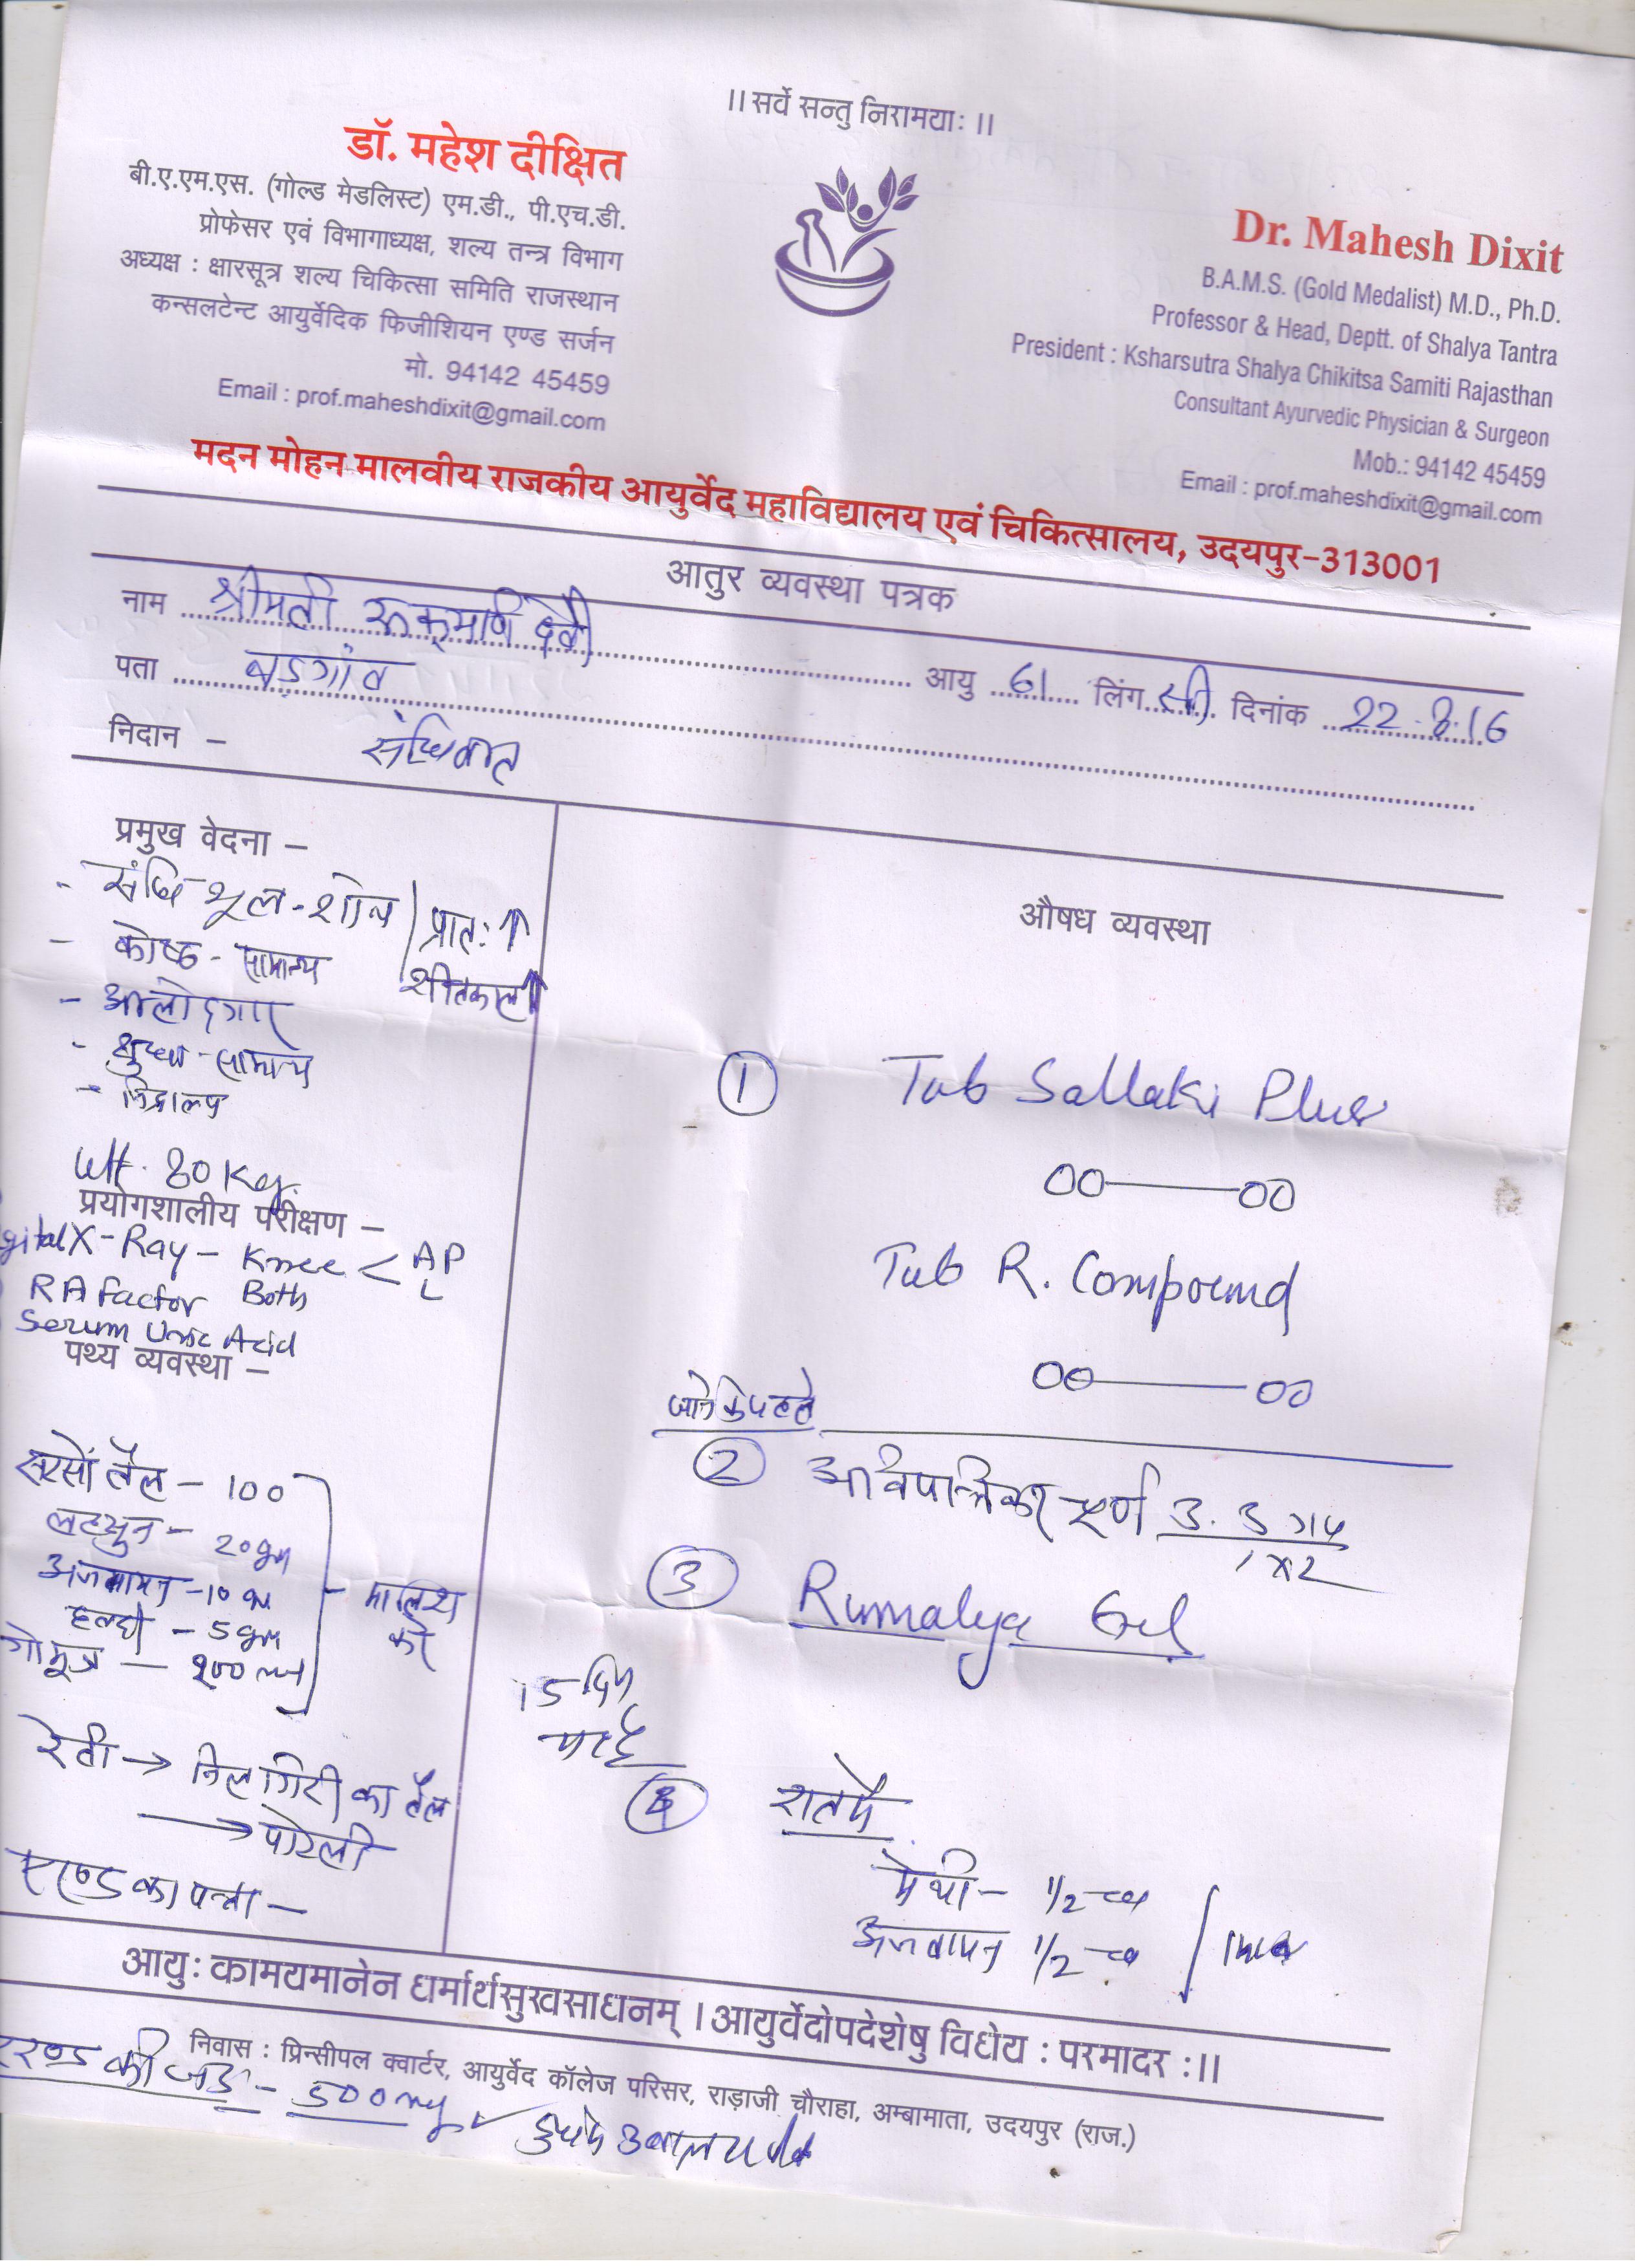 ।। सर्वे सन्तु निरामयाः ।।
डॉ. महेश दीक्षित
बी.ए.एम.एस. (गोल्ड मेडलिस्ट) एम.डी., पी.एच.डी.
प्रोफेसर एवं विभागाध्यक्ष, शल्य तन्त्र विभाग
अध्यक्ष : क्षारसूत्र शल्य चिकित्सा समिति राजस्थान
कन्सलटेन्ट आयुर्वेदिक फिजीशियन एण्ड सर्जन
मो. 94142 45459
Email : prof.maheshdixit@gmail.com
Dr. Mahesh Dixit
B.A.M.S. (Gold Medalist) M.D., Ph.D.
Professor & Head, Deptt. of Shalya Tantra
President : Ksharsutra Shalya Chikitsa Samiti Rajasthan
Consultant Ayurvedic Physician & Surgeon
Mob.: 94142 45459
Email : prof.maheshdixit@gmail.com
मदन मोहन मालवीय राजकीय आयुर्वेद महाविद्यालय एवं चिकित्सालय, उदयपुर-313001
आतुर व्यवस्था पत्रक
नाम श्रीमती रूकमणि देवी आयु 61 लिंग स्त्री दिनांक 22.8.16
पता बड़गांव
निदान - संधिवात
प्रमुख वेदना -
- संधि शूल - शोथ प्रातः ↑
- कोष्ठ - सामान्य शीतकाल ↑
- क्षुधा - सामान्य
- निद्राल्प
Wt. 80 Kg.
प्रयोगशालीय परीक्षण -
Digital X-Ray - Knee < AP L
RA factor Both
Serum Uric Acid
पथ्य व्यवस्था -
सरसों तैल - 100
लहसुन - 20 gm
अजवायन - 10 gm
हल्दी - 5 gm
गोमूत्र - 200 ml
मालिश करें
रेती → निलगिरी का तैल
→ पोटली
एरण्ड का पत्ता -
औषध व्यवस्था
① Tab Sallaki Plus
00——00
Tab R. Compound
00——00
② अविपत्तिकर चूर्ण 3.5 ग्राम
1x2
③ Rumalya Gel
15 दिन
④ रात में
मेथी - 1/2 च
अजवायन 1/2 च
आयुः कामयमानेन धर्मार्थसुखसाधनम् । आयुर्वेदोपदेशेषु विधेयः परमादरः ।।
निवास : प्रिन्सीपल क्वार्टर, आयुर्वेद कॉलेज परिसर, राड़ाजी चौराहा, अम्बामाता, उदयपुर (राज.)
एरण्ड की जड़ - 500 mg दूध में उबाल